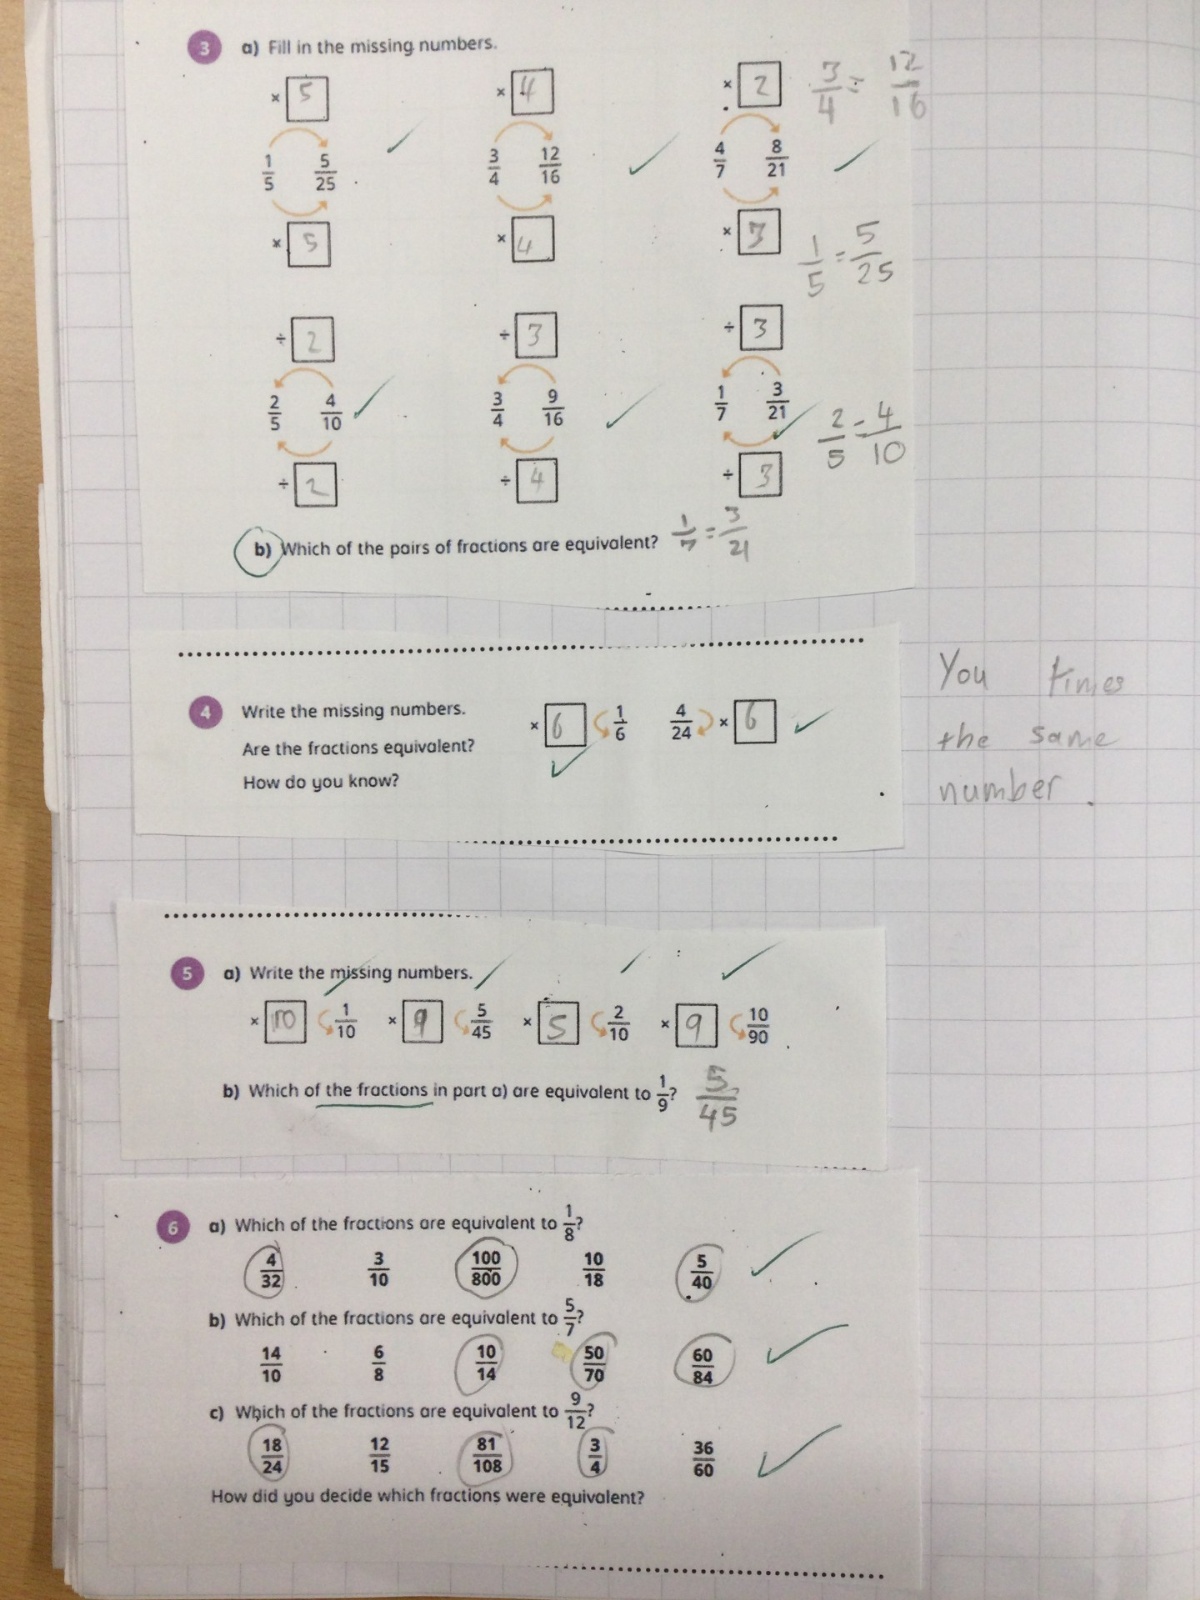 3 a) Fill in the missing numbers.
× 5 × 4 × 2 3/4 = 12/16
1/5 5/25 3/4 12/16 4/7 8/21
× 5 × 4 × 3 1/5 = 5/25
÷ 2 ÷ 3 ÷ 3
2/5 4/10 3/4 9/16 1/7 3/21 2/5 = 4/10
÷ 2 ÷ 4 ÷ 3
b) Which of the pairs of fractions are equivalent? 1/7 = 3/21
4 Write the missing numbers. × 6 1/6 4/24 × 6
Are the fractions equivalent?
How do you know?
You times
the same
number.
5 a) Write the missing numbers.
× 10 1/10 × 9 5/45 × 5 2/10 × 9 10/90
b) Which of the fractions in part a) are equivalent to 1/9? 5/45
6 a) Which of the fractions are equivalent to 1/8?
4/32 3/10 100/800 10/18 5/40
b) Which of the fractions are equivalent to 5/7?
14/10 6/8 10/14 50/70 60/84
c) Which of the fractions are equivalent to 9/12?
18/24 12/15 81/108 3/4 36/60
How did you decide which fractions were equivalent?